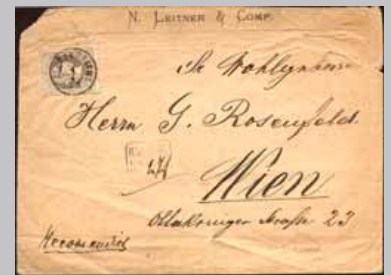 N. LEITNER & COMP.
Sr Wohlgeboren
Herrn G. Rosenfeld
Wien
Ottakringer Straße 23
Recomandirt